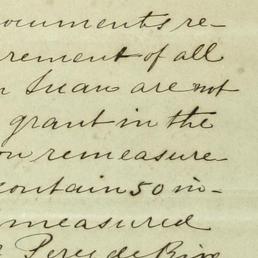 ocuments re-
rement of all
n Juan are not
grant in the
on remeasure
contain 50 in-
measured
Perez de Rive